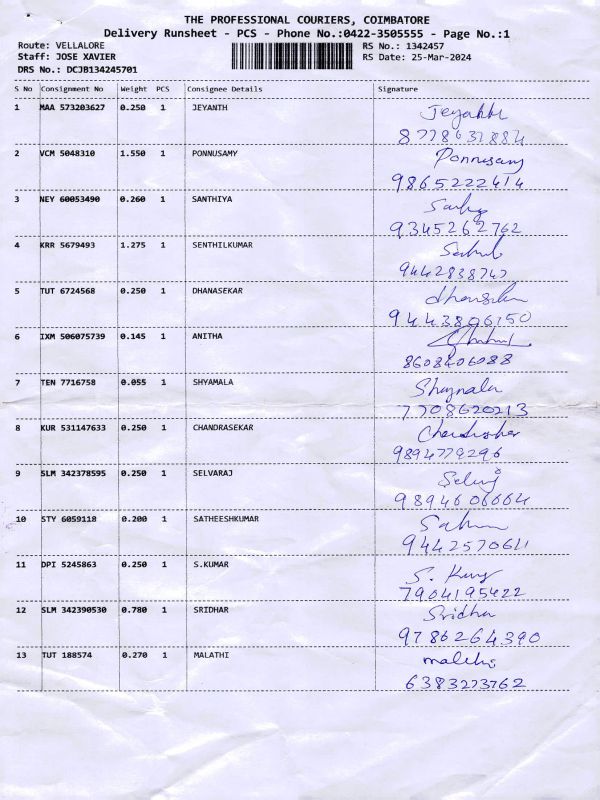 THE PROFESSIONAL COURIERS, COIMBATORE
Delivery Runsheet - PCS - Phone No.:0422-3505555 - Page No.:1
Route: VELLALORE RS No.: 1342457
Staff: JOSE XAVIER RS Date: 25-Mar-2024
DRS No.: DCJB134245701
S No Consignment No Weight PCS Consignee Details Signature
1 MAA 573203627 0.250 1 JEYANTH
2 VCM 5048310 1.550 1 PONNUSAMY Ponnusamy
9865222414
3 NEY 60053490 0.260 1 SANTHIYA
9345262762
4 KRR 5679493 1.275 1 SENTHILKUMAR
5 TUT 6724568 0.250 1 DHANASEKAR
9443806150
6 IXM 506075739 0.145 1 ANITHA
8608406088
7 TEN 7716758 0.055 1 SHYAMALA Shyamala
7708620213
8 KUR 531147633 0.250 1 CHANDRASEKAR
9894779296
9 SLM 342378595 0.250 1 SELVARAJ
9894606664
10 STY 6059118 0.200 1 SATHEESHKUMAR
11 DPI 5245863 0.250 1 S.KUMAR S. Kumar
7904195422
12 SLM 342390530 0.780 1 SRIDHAR Sridhar
9786264390
13 TUT 188574 0.270 1 MALATHI
6383273762